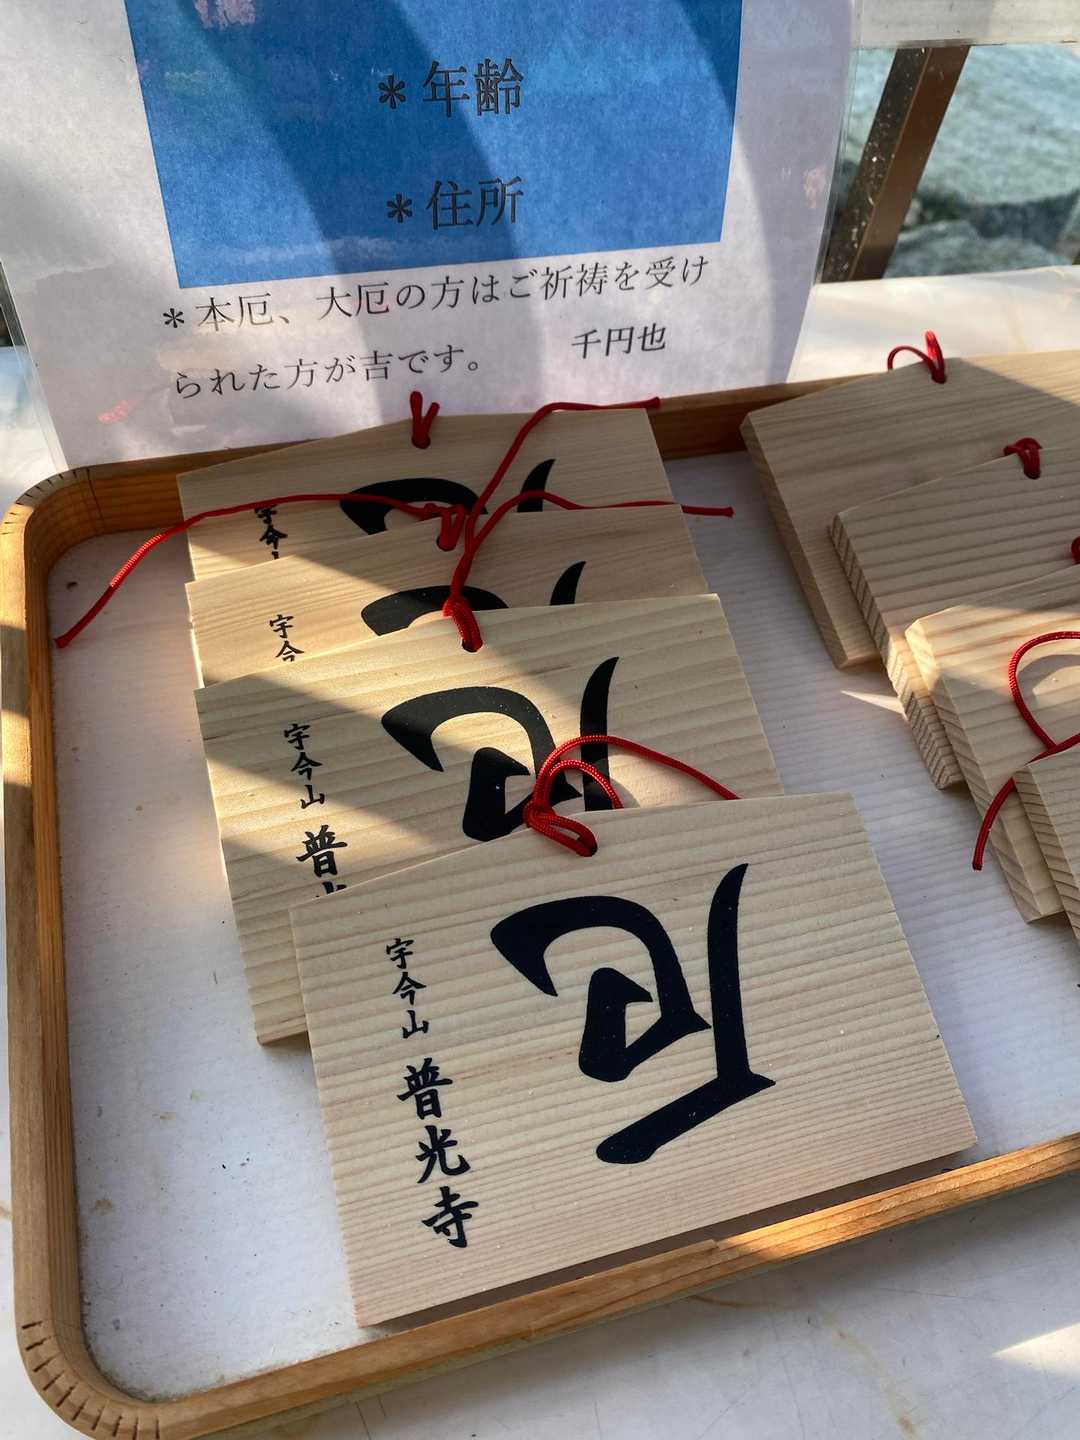 ＊年齢
＊住所
＊本厄、大厄の方はご祈祷を受け
られた方が吉です。 千円也
宇今山
宇今
厄
宇今山 普光
厄
宇今山 普光寺